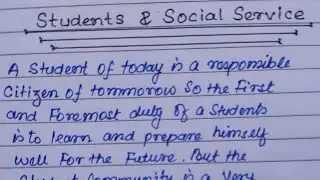 Students & Social Service
A Student of today is a responsible
Citizen of tommorow So the First
and Foremost duty of a Students
is to learn and prepare himself
Well For the Future. But the
Student Community is a Very